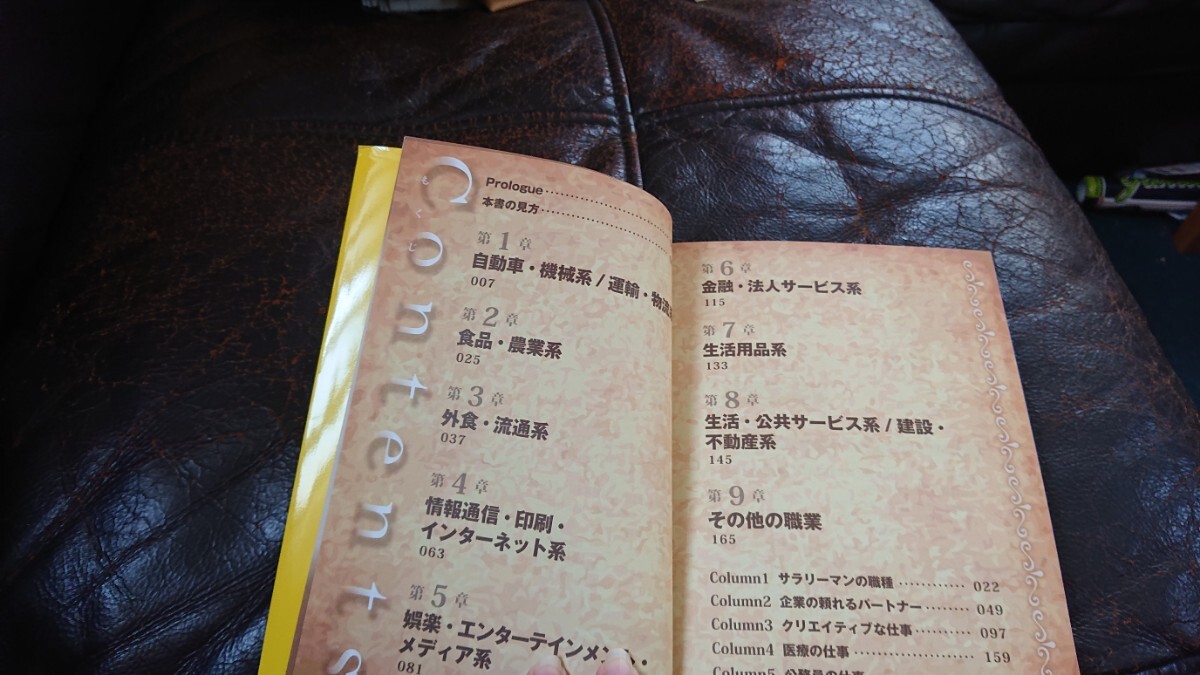 Contents
Prologue
本書の見方
第1章
自動車・機械系 / 運輸・物流
007
第2章
食品・農業系
025
第3章
外食・流通系
037
第4章
情報通信・印刷・
インターネット系
063
第5章
娯楽・エンターテインメント・
メディア系
081
第6章
金融・法人サービス系
115
第7章
生活用品系
133
第8章
生活・公共サービス系 / 建設・
不動産系
145
第9章
その他の職業
165
Column1 サラリーマンの職種 ………… 022
Column2 企業の頼れるパートナー …… 049
Column3 クリエイティブな仕事 ……… 097
Column4 医療の仕事 ………………… 159
Column5 公務員の仕事